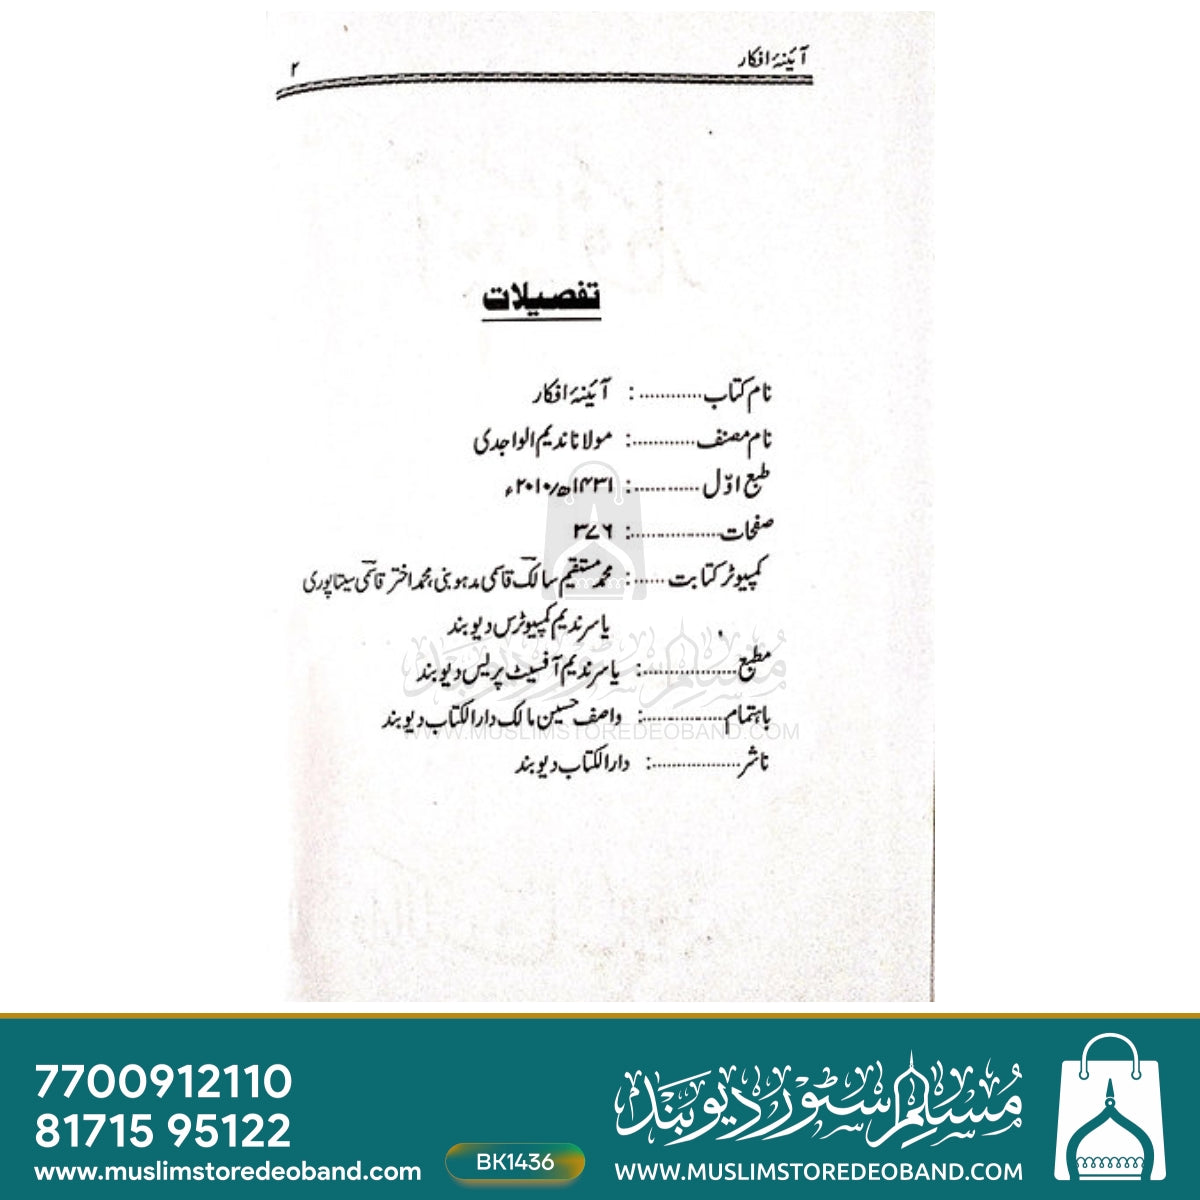 آئینۂ افکار
۲
تفصیلات
نام کتاب............: آئینۂ افکار
نام مصنف............: مولانا ندیم الواجدی
طبع اوّل............: ۱۴۳۱ھ/۲۰۱۰ء
صفحات.................: ۳۷۶
کمپیوٹر کتابت......: محمد مستقیم سالک قاسمی مدہوبنی، محمد اختر قاسمی سیتاپوری
یاسر ندیم کمپیوٹرس دیوبند
مطبع..................: یاسر ندیم آفسیٹ پریس دیوبند
باہتمام................: واصف حسین مالک دارالکتاب دیوبند
ناشر..................: دارالکتاب دیوبند
مسلم سٹور دیوبند
WWW.MUSLIMSTOREDEOBAND.COM
7700912110
81715 95122
www.muslimstoredeoband.com
BK1436
مُسلِم سٹور دیوبَند
WWW.MUSLIMSTOREDEOBAND.COM